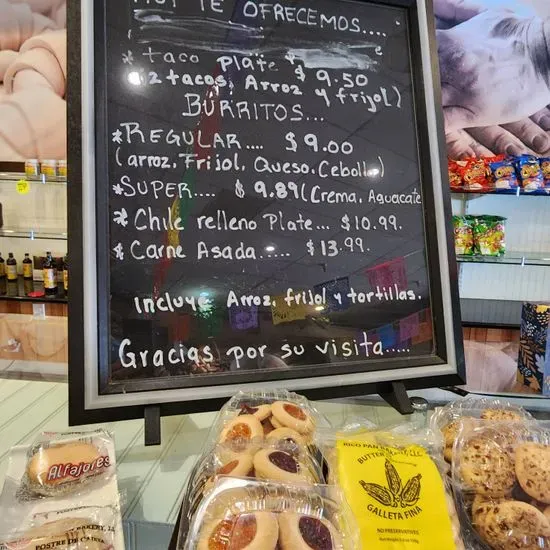 HOY TE OFRECEMOS....
* taco Plate $9.50
(2 tacos, Arroz y frijol)
BURRITOS...
*REGULAR.... $9.00
(arroz, Frijol, Queso, Cebolla)
*SUPER.... $9.89 (Crema, Aguacate
* Chile relleno Plate... $10.99.
* Carne Asada..... $13.99.
incluye Arroz, frijol y tortillas.
Gracias por su visita....
Alfajores
BAKERY,
POSTRE DE
RICO PAN
BUTTER
GALLETA FINA
NO PRESERVATIVES